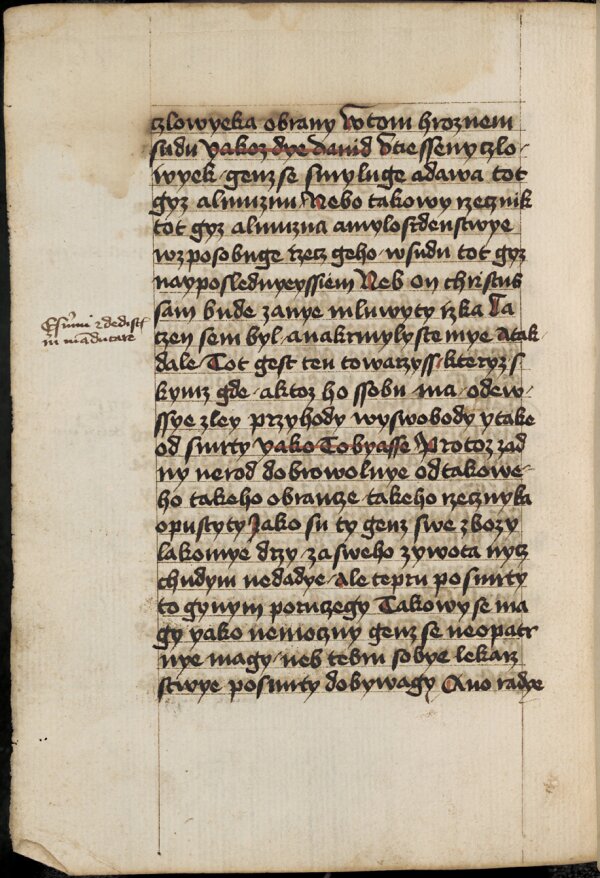 czlowyeka obrany W tom hroznem
sudu yakoz dye dauid Vtiessenyczlo-
wyek genz se smyluge adawa tot
gyz almuznu Nebo takowy rzecznik
tot gyz almuzna amylosrdenstwye
wzposobuge rzecz geho w sudu tot gyz
nayposlednyeyssiem Neb on christus
sam bude zanye mluwyty rzka La
czen sem byl anakrmylyste mye Atak
dale Tot gest ten towarzyss kteryz s
kymz gde aktoz ho ssobu ma odew-
ssye zley przyhody wyswobody ytake
od smrty yako Tobyasse Protoz zad
ny nerod dobrowolnye odtakowe-
ho takeho obrancze takeho rzecznyka
opustyty Jako su ty genz swe zbozy
lakomye drzy zasweho zywota nycz
chudym nedadye Ale tepru po smrty
to gynym poruczegy Takowy se ma
gy yako nemoczny genz se neopatr
nye magy neb tehm sobye lekarz
stwye posmrty dobywagy Ano radye
Esurivi et dedistis
m manducare